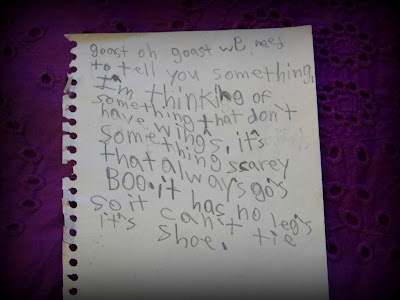 goast oh goast we need
to tell you something,
I'm thinking of
something that don't
have wings, it's
something
that always scarey
BOO. it go's
so it has no leg's
it's can't tie
shoe.